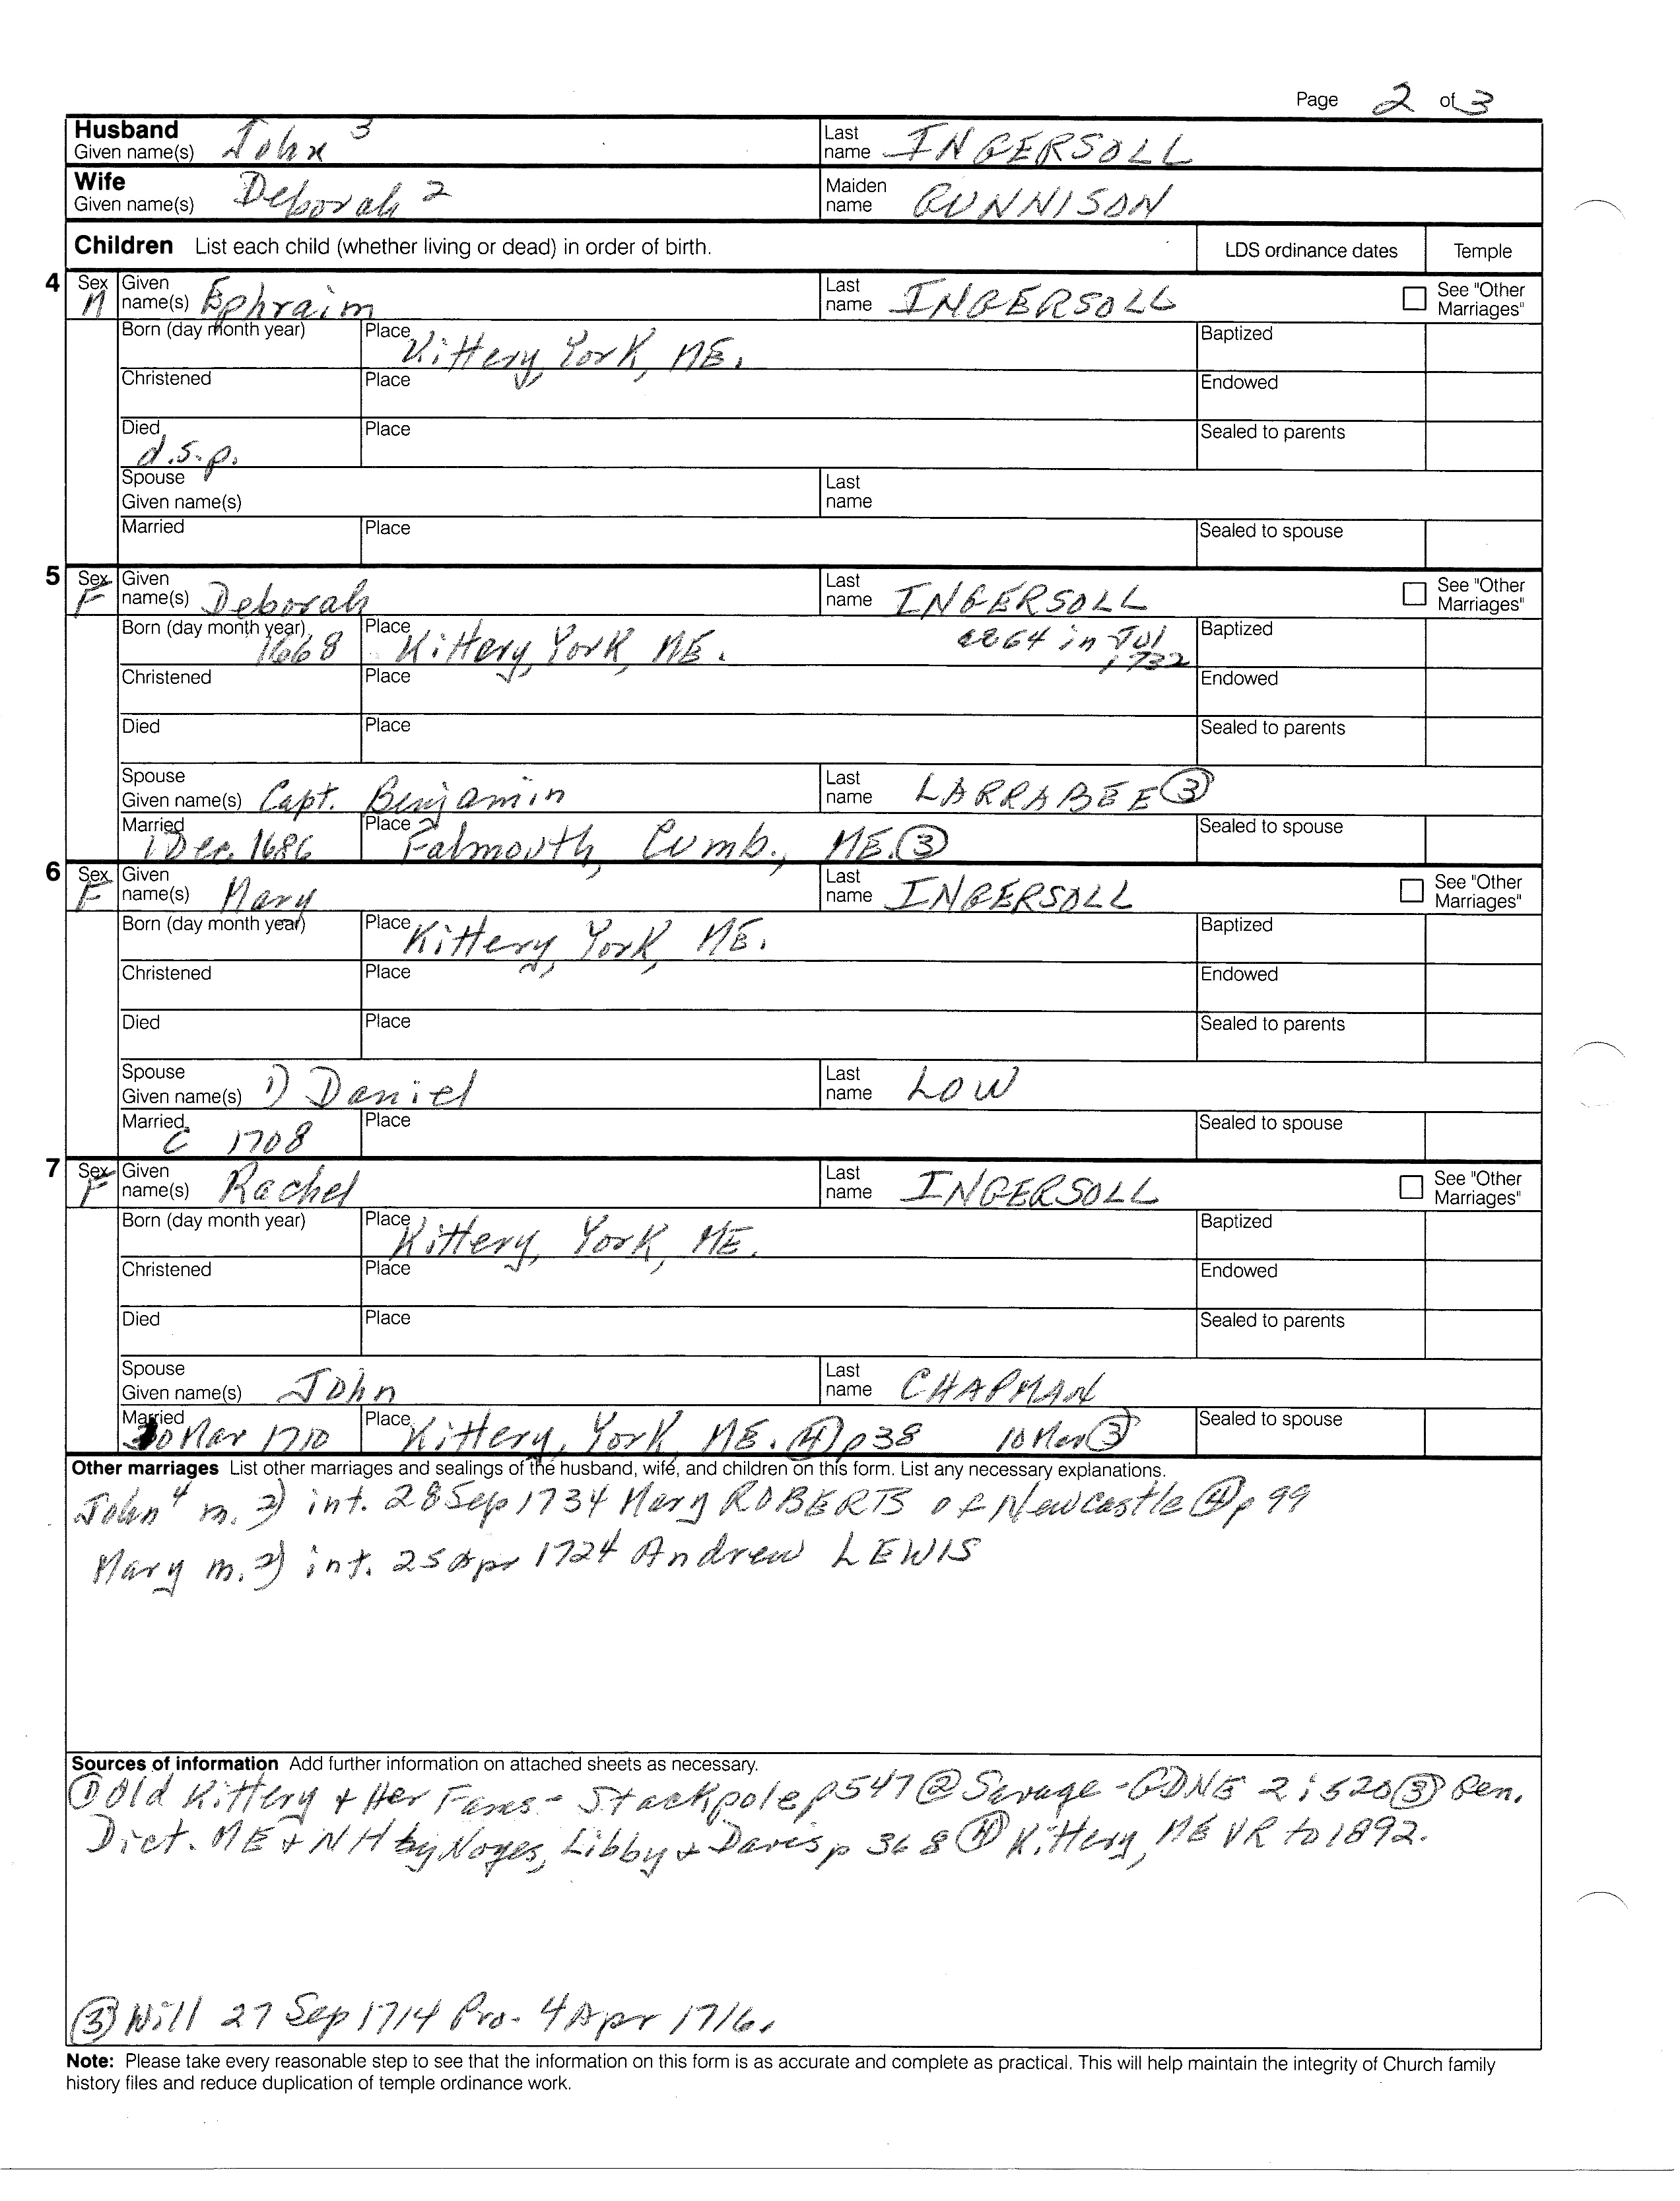 Page 2 of 3
Husband Given name(s) John 3 Last name INGERSOLL
Wife Given name(s) Deborah 2 Maiden name GUNNISON
Children List each child (whether living or dead) in order of birth. LDS ordinance dates Temple
4 Sex M Given name(s) Ephraim Last name INGERSOLL See "Other Marriages"
Born (day month year) Place Kittery, York, ME. Baptized
Christened Place Endowed
Died d.s.p. Place Sealed to parents
Spouse Given name(s) Last name
Married Place Sealed to spouse
5 Sex F Given name(s) Deborah Last name INGERSOLL See "Other Marriages"
Born (day month year) 1668 Place Kittery, York, ME. ae 64 in Jul 1732 Baptized
Christened Place Endowed
Died Place Sealed to parents
Spouse Given name(s) Capt. Benjamin Last name LARRABEE ③
Married 1 Dec. 1686 Place Falmouth, Cumb., ME. ③ Sealed to spouse
6 Sex F Given name(s) Mary Last name INGERSOLL See "Other Marriages"
Born (day month year) Place Kittery, York, ME. Baptized
Christened Place Endowed
Died Place Sealed to parents
Spouse Given name(s) 1) Daniel Last name LOW
Married C 1708 Place Sealed to spouse
7 Sex F Given name(s) Rachel Last name INGERSOLL See "Other Marriages"
Born (day month year) Place Kittery, York, ME. Baptized
Christened Place Endowed
Died Place Sealed to parents
Spouse Given name(s) John Last name CHAPMAN
Married 30 Mar 1710 Place Kittery, York, ME. ④ p 38 10 Mar ③ Sealed to spouse
Other marriages List other marriages and sealings of the husband, wife, and children on this form. List any necessary explanations.
John 4 m. 2) int. 28 Sep 1734 Mary ROBERTS of Newcastle ④ p 99
Mary m. 2) int. 25 Apr 1724 Andrew LEWIS
Sources of information Add further information on attached sheets as necessary.
① Old Kittery + Her Fams - Stackpole p 547 ② Savage - GDNE 2:520 ③ Gen.
Dict. ME + NH by Noyes, Libby + Davis p 368 ④ Kittery, ME VR to 1892.
③ Will 27 Sep 1714 Pro. 4 Apr 1716.
Note: Please take every reasonable step to see that the information on this form is as accurate and complete as practical. This will help maintain the integrity of Church family
history files and reduce duplication of temple ordinance work.